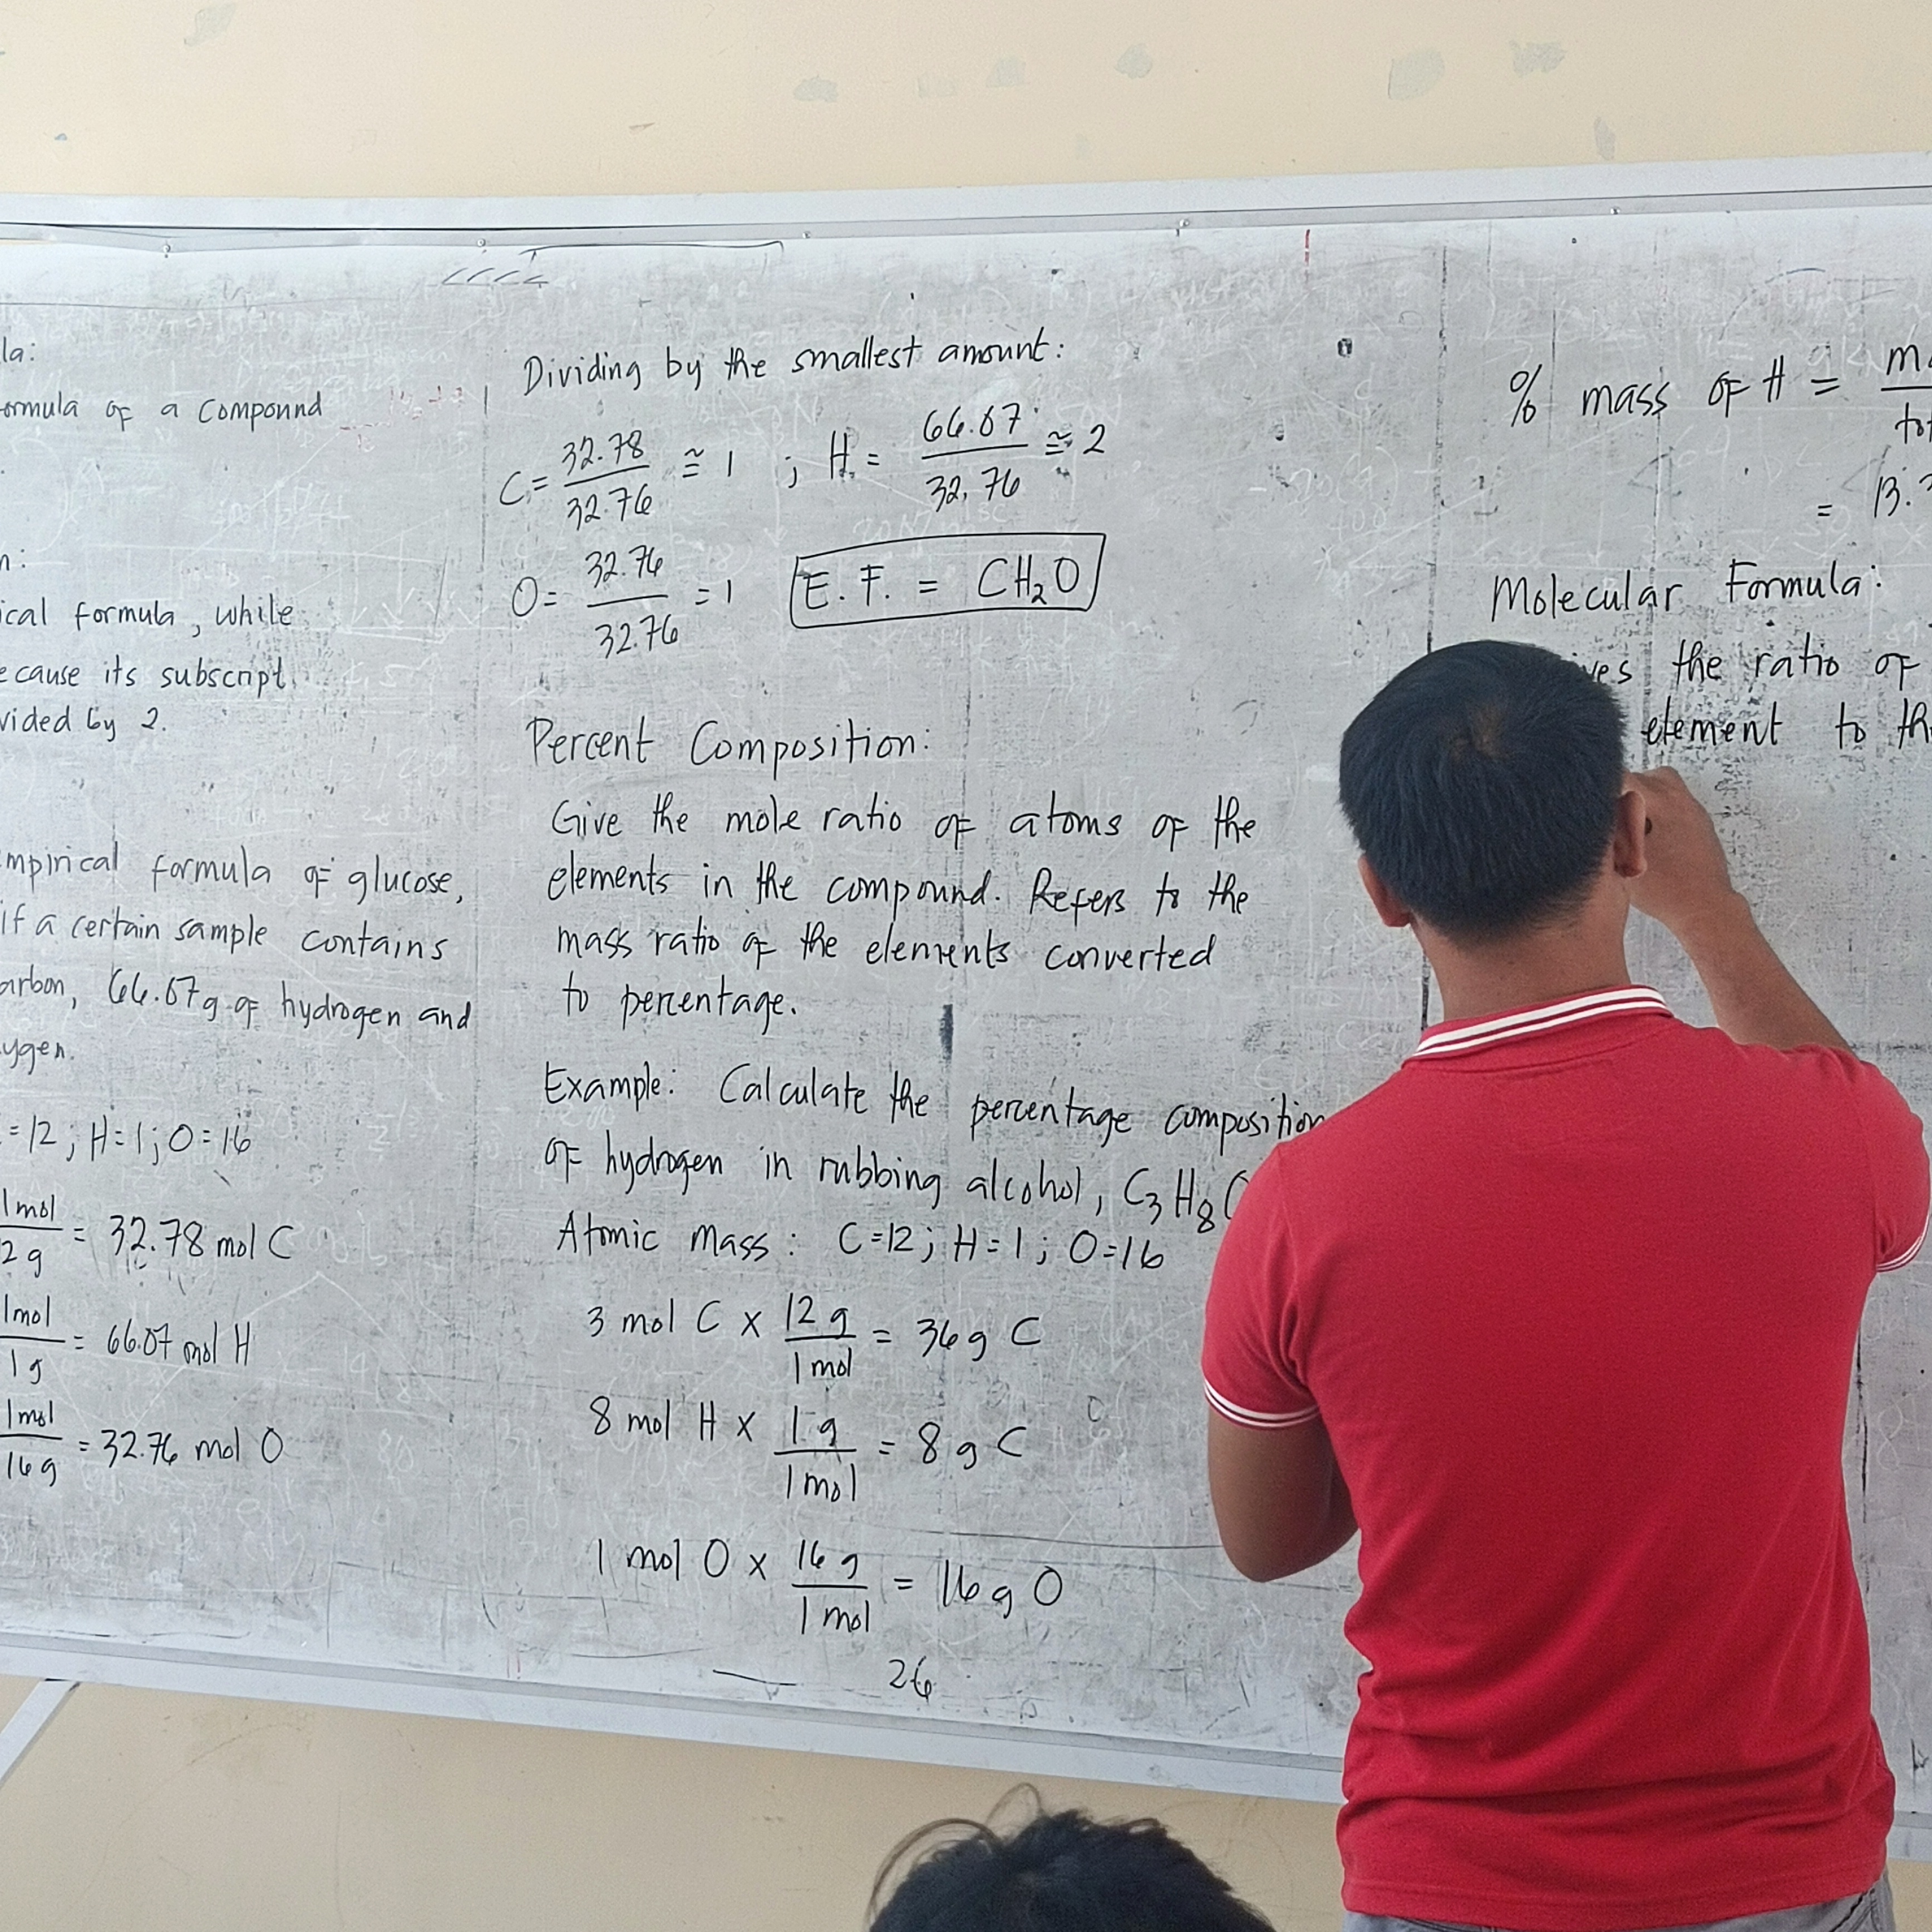 la:
ormula of a compound
n:
ical formula, while
ecause its subscript
vided by 2.
mpirical formula of glucose,
if a certain sample contains
arbon, 66.67g of hydrogen and
ygen.
=12; H=1; O=16
1mol
2g
= 32.78 mol C
1mol
1g
= 66.07 mol H
1mol
16g
= 32.76 mol O
Dividing by the smallest amount:
C= 32.78
32.76
≅ 1 ; H= 66.67
32.76
≅ 2
O= 32.76
32.76
=1
E.F. = CH₂O
Percent Composition:
Give the mole ratio of atoms of the
elements in the compound. Refers to the
mass ratio of the elements converted
to percentage.
Example: Calculate the percentage composition
of hydrogen in rubbing alcohol, C₃H₈O
Atomic mass: C=12; H=1; O=16
3 mol C x 12 g
1 mol
= 36 g C
8 mol H x 1 g
1 mol
= 8 g C
1 mol O x 16 g
1 mol
= 16 g O
26
% mass of H =
= 13.
Molecular Formula:
ves the ratio of
element to th